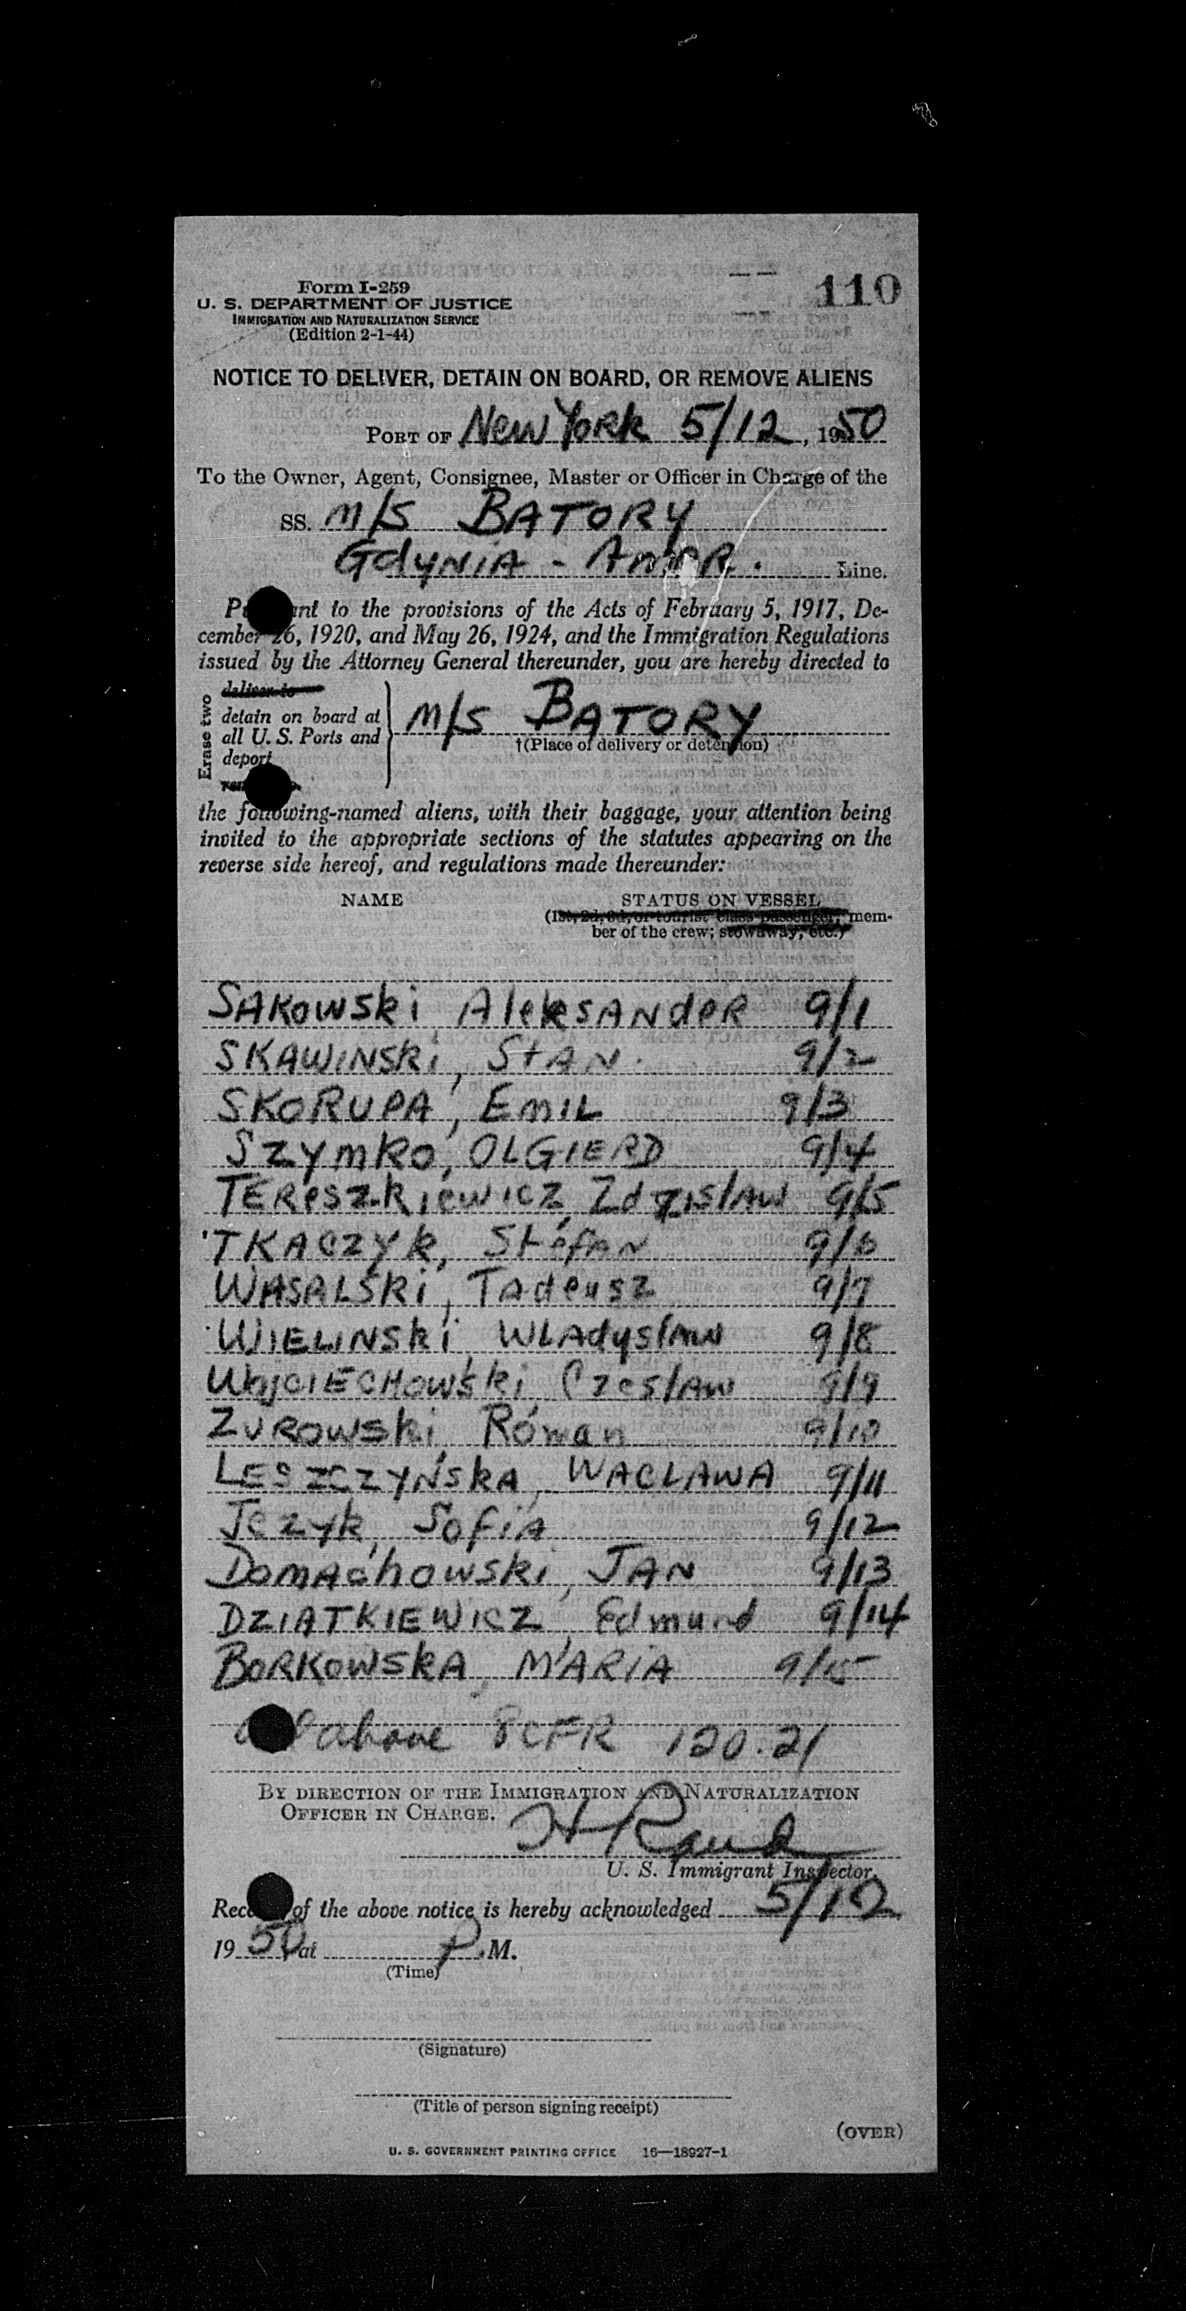 110
Form I-259
U. S. DEPARTMENT OF JUSTICE
IMMIGRATION AND NATURALIZATION SERVICE
(Edition 2-1-44)
NOTICE TO DELIVER, DETAIN ON BOARD, OR REMOVE ALIENS
PORT OF New York 5/12, 1950
To the Owner, Agent, Consignee, Master or Officer in Charge of the
SS. M/S BATORY
GdyNIA - AMER. Line.
to the provisions of the Acts of February 5, 1917, De-
cember 26, 1920, and May 26, 1924, and the Immigration Regulations
issued by the Attorney General thereunder, you are hereby directed to
Erase two
deliver to
detain on board at
all U. S. Ports and
deport
M/S BATORY
†(Place of delivery or detention)
the following-named aliens, with their baggage, your attention being
invited to the appropriate sections of the statutes appearing on the
reverse side hereof, and regulations made thereunder:
NAME STATUS ON VESSEL
(1st, 2d, 3d, or tourist class passenger, mem-
ber of the crew; stowaway, etc.)
SAKOWSki, AleksANdeR 9/1
SKAWINSKi, StAN. 9/2
SKORUPA, EMIL 9/3
SZYMKO, OLGIERD 9/4
TEReSZKiewICZ, ZdZISlAW 9/5
TKACZYK, StefAN 9/6
WASALSKi, Tadeusz 9/7
WIELINSki, WLAdyslAW 9/8
WOjCIECHOWSki, CzeslAW 9/9
ZUROWSki, Roman 9/10
LESZCZYŃSKA, WACLAWA 9/11
JEZYK, SOFIA 9/12
DOMAchOWSKi, JAN 9/13
DZIATKIEWICZ, Edmund 9/14
BORKOWSKA, MARIA 9/15
above 8CFR 120.21
BY DIRECTION OF THE IMMIGRATION AND NATURALIZATION
OFFICER IN CHARGE.
U. S. Immigrant Inspector.
of the above notice is hereby acknowledged 5/12
1950, at P. M.
(Time)
(Signature)
(Title of person signing receipt)
(OVER)
U. S. GOVERNMENT PRINTING OFFICE 16—18927-1